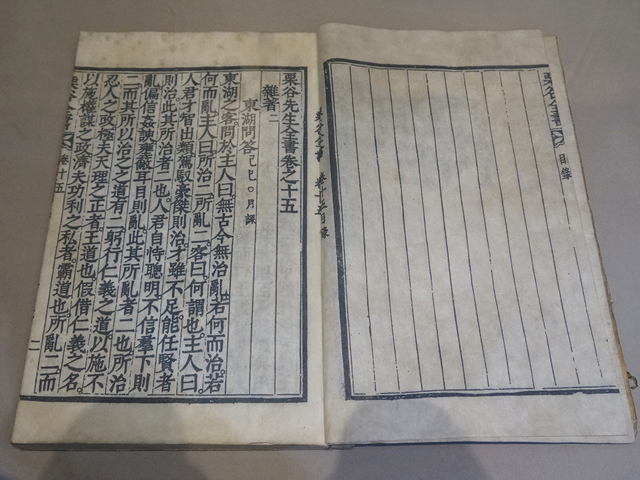 栗谷全書
目錄
栗谷先生全書卷之十五
雜著二
東湖問答 己巳○月課
東湖之客問於主人曰無古今無治亂若何而治若
何而亂主人曰所治二所亂二客曰何謂也主人曰
人君才智出類駕馭豪傑則治才雖不足能任賢者
則治此其所治者二也人君自恃聰明不信羣下則
亂偏信姦諛壅蔽耳目則亂此其所亂者二也所治
二而其所以治之之道有二躬行仁義之道以施不
忍人之政極夫天理之正者王道也假借仁義之名
以施權謀之政濟夫功利之私者霸道也所亂二而
栗谷全書 卷十五 二